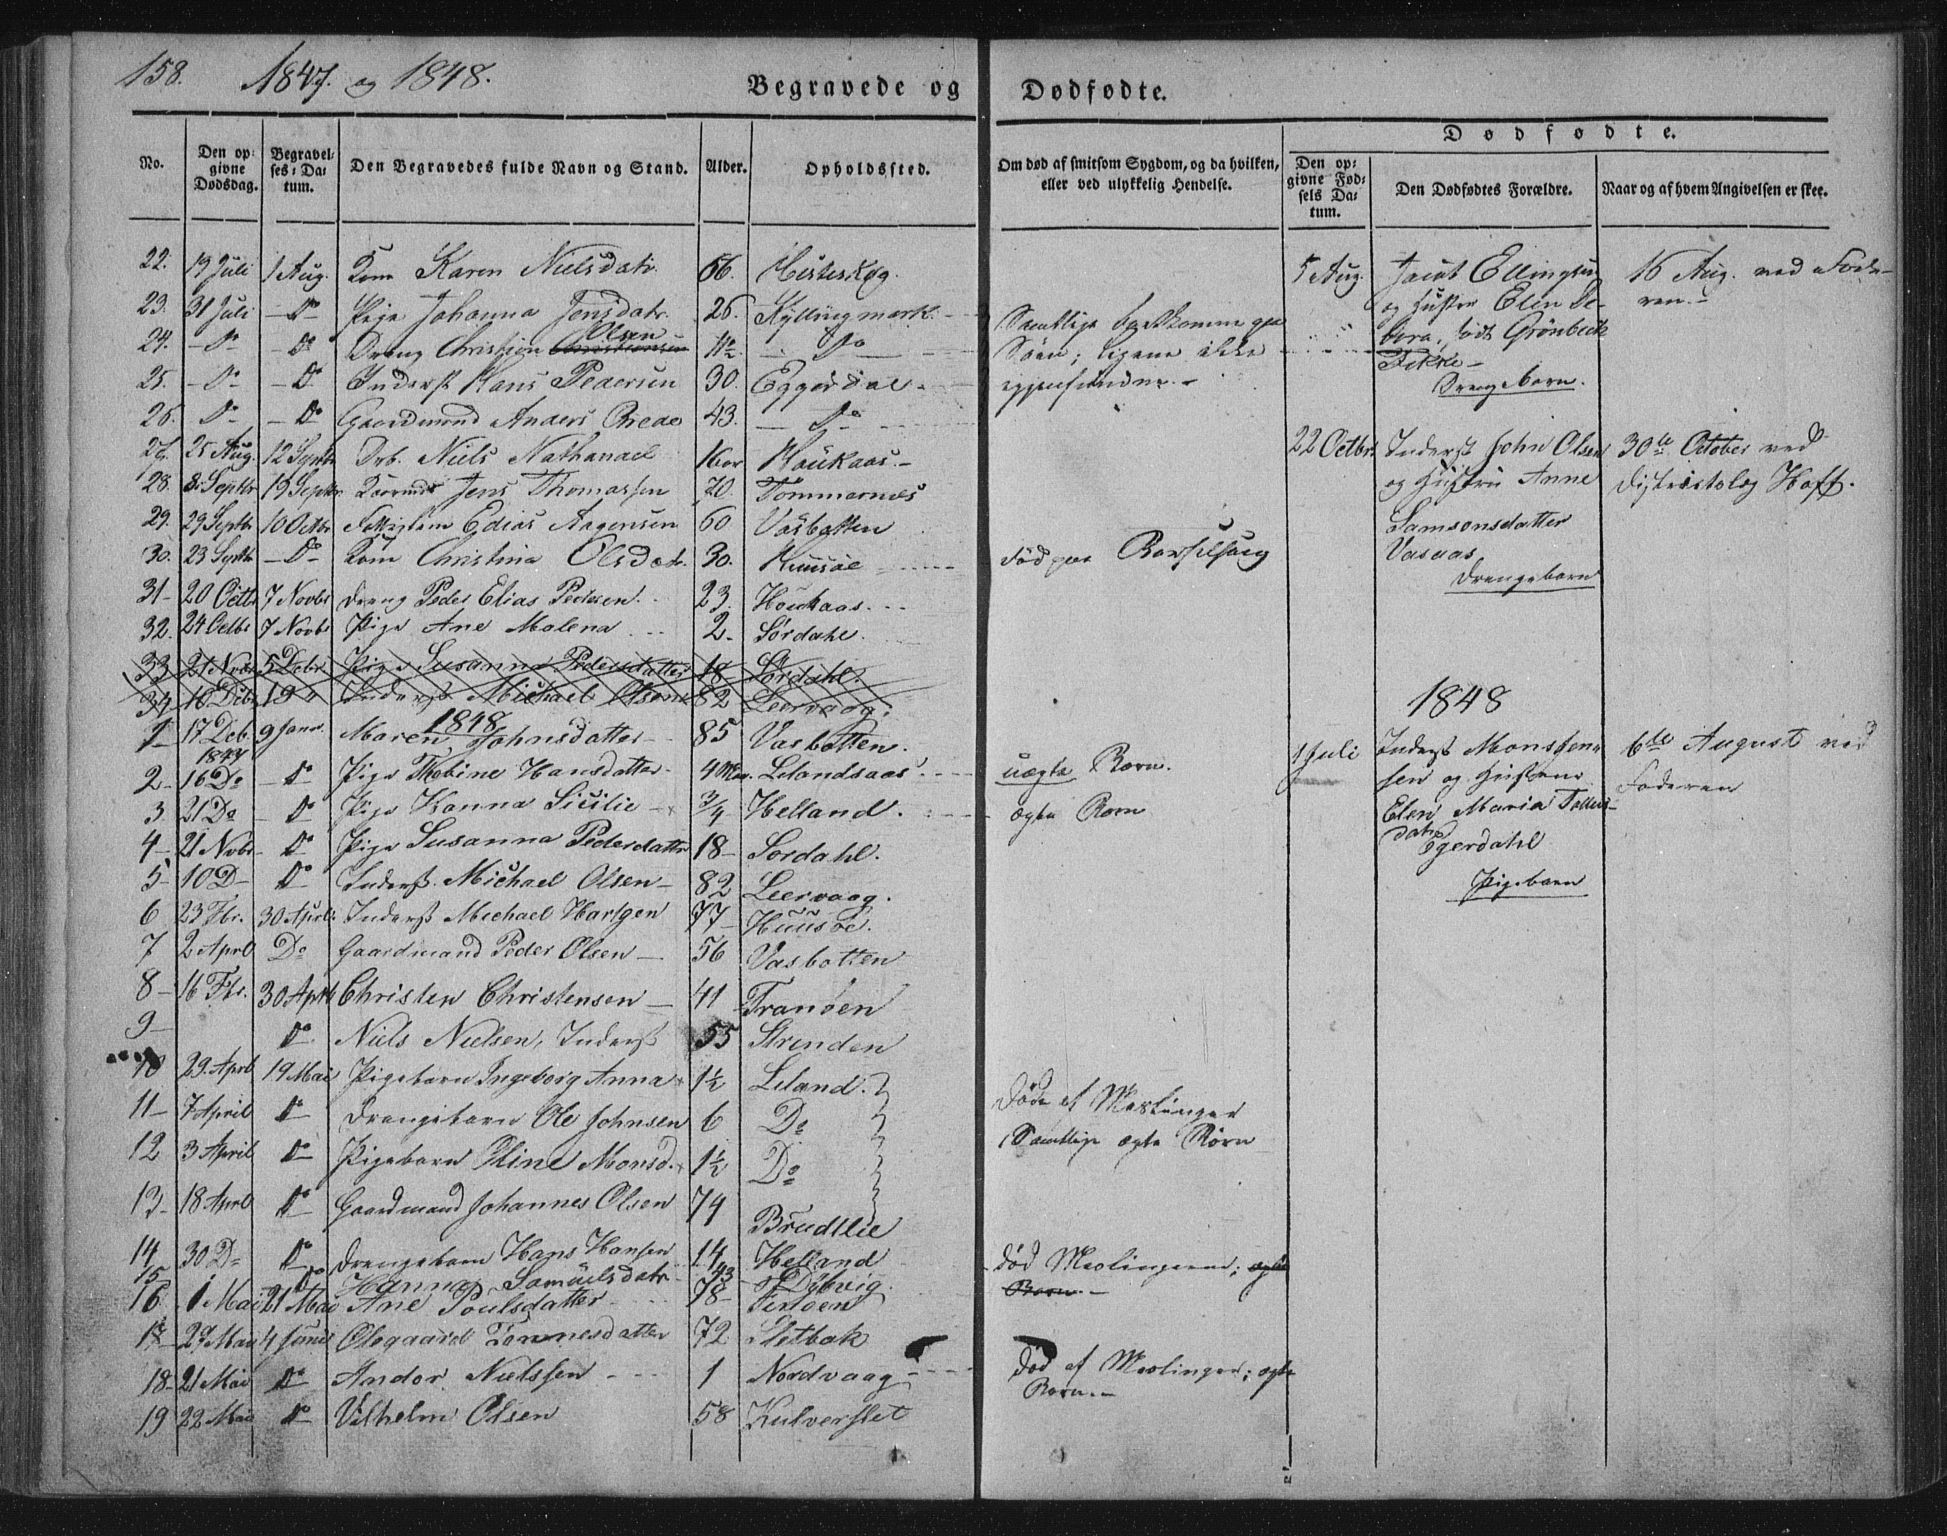 158. 1847. og 1848.
Begravede og Dødfødte.
Dødfødte.
No.
Den opgivne Dødsdag.
Begravelses-Datum.
Den Begravedes fulde Navn og Stand.
Alder.
Opholdssted.
Om død af smitsom Sygdom, og da hvilken, eller ved ulykkelig Hendelse.
Den opgivne Fødsels Datum.
Den Dødfødtes Forældre.
Naar og af hvem Angivelsen er skee.
22. 19 Juli 1 Aug. Kone Karen Nielsdatr. 66. Hesteskog.
23. 31 Juli — Do Pige Johanna Jensdatr. 26. Kyllingmark.
24. — Do — Do Dreng Christian Olsen 11½ — Do
25. — Do — Do Inderst Hans Pedersen 30. Eggerdal
26. Do — Do Gaardmand Anders Brede 43. — Do
Samtlige bortkomme paa
Søen; ligene ikke
gjenfundne.
27. 25 Aug. 12 Septbr Drb. Niels Nathanael Houkaas.
28. Septbr 19 Septbr Jens Thomassen 70. Tommernes
29. 29 Septbr 10 Octbr Edias Aagensen 60 Vasbotten
30. 23 Septbr — Do Kone Christina Olsdatr. 30. Huusøe Død paa Barselseng
31 20 Octbr 7 Novbr Dreng Peder Elias Pedersen 23. Houkaas.
32. 24 Octbr 7 Novbr Pige Ane Malena 2 Sørdahl.
33 21 Novbr 5 Debr. Pige Susanna Pedersdatter 18 Sørdahl.
34 10 Debr 19 Inderst Michael Olsen 82 Leervaag.
1848
1 17 Deb. 1847 9 Janr. Maren Johnsdatter 85 Vasbotten.
2 16 Do Do Pige Hansdatter 4 Lelandsaas uægte Børn.
3 21 Do Do Pige Hanna Sicilie ¾ Helland. ægte Born
4 21 Nvbr Do Pige Susanna Pedersdatter 18 Sordahl.
5 10 D Do Inderst Michael Olsen 82 Leervaag.
6 23 Fbr. 30 April Inderst Michael Hartgen 77 Huusøe.
7 2 Aprl Do Gaardmand Peder Olsen 56 Vasbotten
8 16 Fbr. 30 Aprl Christen Christensen 41 Tranøen
9 Do Niels Nielsen, Inderst 55 Strenden
10 29. Aprl 19 Mai Pigebarn Ingeborg Anna 1½ Leland.
11 7 April Do Drengebarn Ole Johnsen 6 Do
12 3 April Do Pigebarn Oline Monsd. 1½ Do
Døde af Meslinger
Samtlige ægte Børn
13 18 Aprl Do Gaardmand Johannes Olsen 74 Brudtlie
14 30 Do Do Drengebarn Hans Hansen 14 Helland død Meslingerne; ægte
Barn.
15 Do Hanna Samuelsdatr. 43 Døbvig
16 1 Mai 21 Mai Ane Poulsdatter 78 Tenøen
17 27 Mai 4 Juni Olegaard Tønnesdatter 72 Sletbak
18 21 Mai Do Andor Nielssen 1 Nordvaag død af Meslinger; ægte
Barn.
19 22 Mai Do Vilhelm Olsen 58 Kulverslet
5 Aug. Jacob Ellingsen
og Hustru Elen De-
bora, født Grønbeck
Drengebarn.
16 Aug. ved Fade-
ren.
22 Octbr. Inderst John Olsen
og Hustru Anne
Samsonsdatter
Vasaas.
Drengebarn
30te October ved
Districtslæg Hoff.
1848
1 Juli Inderst Mons Jen-
sen og Hustru
Elen Maria Tollers-
datr.
Egerdahl
Pigebarn
6te August ved
Faderen